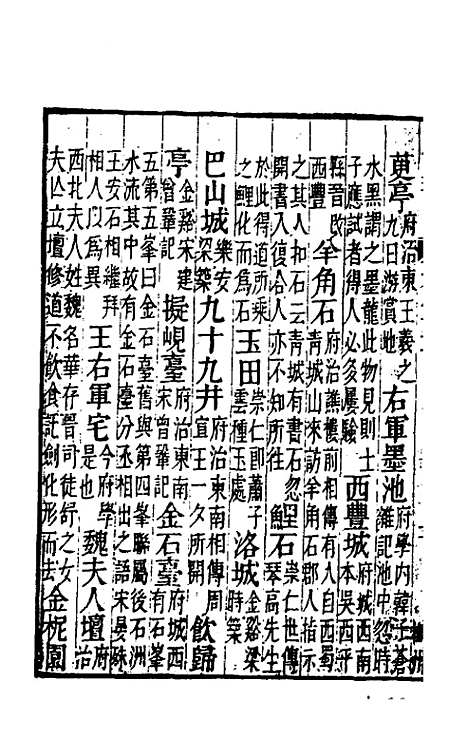 茰亭府治東王羲之九日游賞地右軍墨池府學内韓子蒼雜記池中忽時
水黑謂之墨龍此物見則士子應試者得人必多屢驗西豐城府城西南本吳西平
縣晉改西豐羊角石府治譙樓前相傳有人自西蜀青城山來訪羊角石郡人指示
之其人扣石云青城有書石忽開書入復合人亦不知所往鯉石崇仁世傳琴高先生
於此得道所乘之鯉化而爲石玉田崇仁卽蕭子雲種玉處洛城金谿梁時築
巴山城樂安梁築九十九井府治東南相傳周宣王一夕所開飲歸
亭金谿宋建曾鞏記擬峴臺府治東南宋曾鞏記金石臺府城西有石峯
五第五峯曰金石臺舊與第四峯聯屬後石洲水流其中故有金石臺分丞相出之語宋晏殊
王安石相繼拜相人以爲異王右軍宅今府學是也魏夫人壇府治
西北夫人姓魏名華存晉司徒舒之女夫亾立壇修道不飲食託劒化形而去金柅園